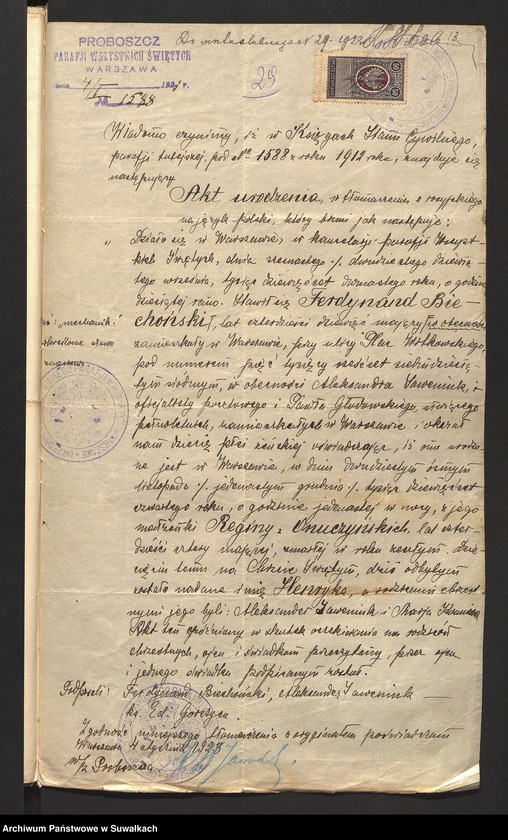 PROBOSZCZ
PARAFJI WSZYSTKICH ŚWIĘTYCH
WARSZAWA
dnia 4/I 192 r.
№ 1588
29
13
Wiadomo czynimy, iż w Księgach Stanu Cywilnego,
parafji tutejszej, pod № 1588 z roku 1912 roku, znajduje się
następujący
Akt urodzenia, w tłumaczeniu z rosyjskiego
na język polski, który brzmi jak następuje:
„Działo się w Warszawie, w kancelarji parafji Wszyst-
kich Świętych, dnia szesnastego /. dwudziestego dziewią-
tego września, tysiąc dziewięćset dwunastego roku, o godzinie
dziesiątej rano. Stawił się Ferdynand Bie-
choński, lat czterdzieści dziewięć mający
zamieszkały w Warszawie, przy ulicy Plac Witkowskiego,
pod numerem pięć tysięcy sześćset siedmdziesią-
tym ósmym, w obecności Aleksandra Jaweniuk,
oficjalisty pocztowego i Pawła
pełnoletnich, zamieszkałych w Warszawie i okazał
nam dziecię płci żeńskiej oświadczając, iż ono urodzo-
ne jest w Warszawie, w dniu dwudziestym ósmym
listopada /. jedenastym grudnia /. tysiąc dziewięćset
czwartego roku, o godzinie jedenastej w nocy, z jego
małżonki Reginy z Onuczyńskich, lat czter-
dzieści cztery mającej, zmarłej w roku zeszłym. Dzie-
cięciu temu na Chrzcie Świętym, dziś odbytym
zostało nadane imię Henryka, a rodzicami chrzest-
nymi jego byli: Aleksander Jaweniuk i Marja
Akt ten opóźniony w skutek oczekiwania na rodziców
chrzestnych, ojcu i świadkom przeczytany, przez ojca
i jednego świadka podpisanym został.
Podpisali: Ferdynand Biechoński, Aleksander Jaweniuk
ks. Ed. Gorszyn
Zgodność niniejszego tłumaczenia z oryginałem poświadczam
Warszawa 4 stycznia 1923
w/z Proboszcza
Archiwum Państwowe w Suwałkach